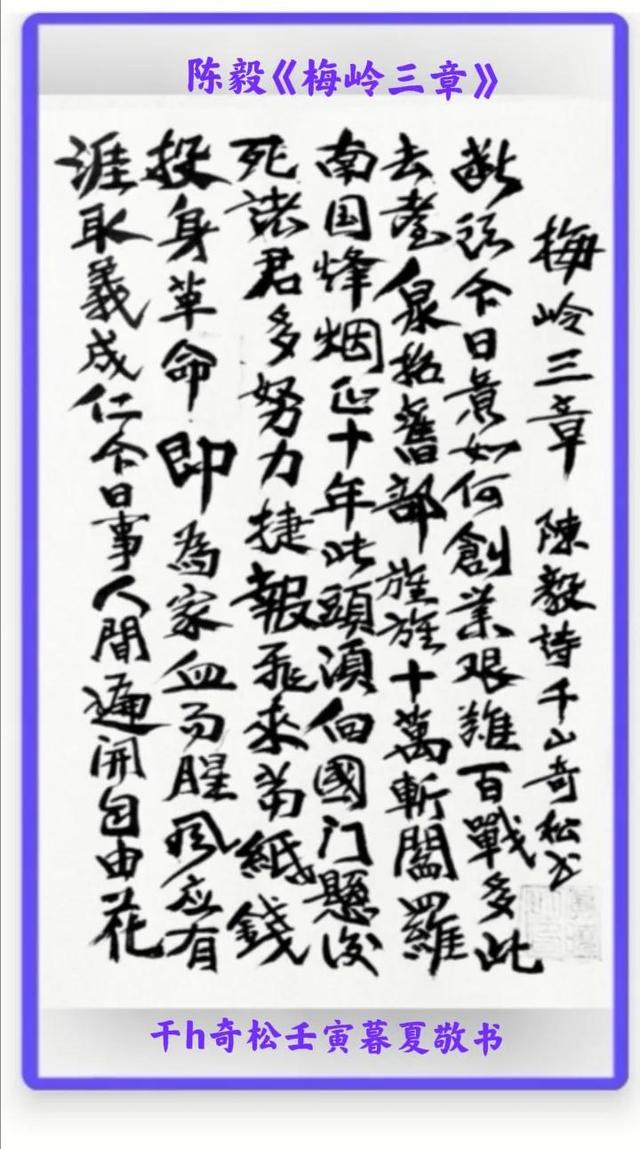 陈毅《梅岭三章》
梅岭三章 陳毅詩千山奇松书
断頭今日意如何創業艰難百戰多此
去臺泉招舊部旌旗十萬斬閻羅
南国烽烟正十年此頭須向國门懸後
死諸君多努力捷報飛來當紙錢
投身革命即為家血雨腥风应有
涯取義成仁今日事人間遍開自由花
千h奇松壬寅暮夏敬书